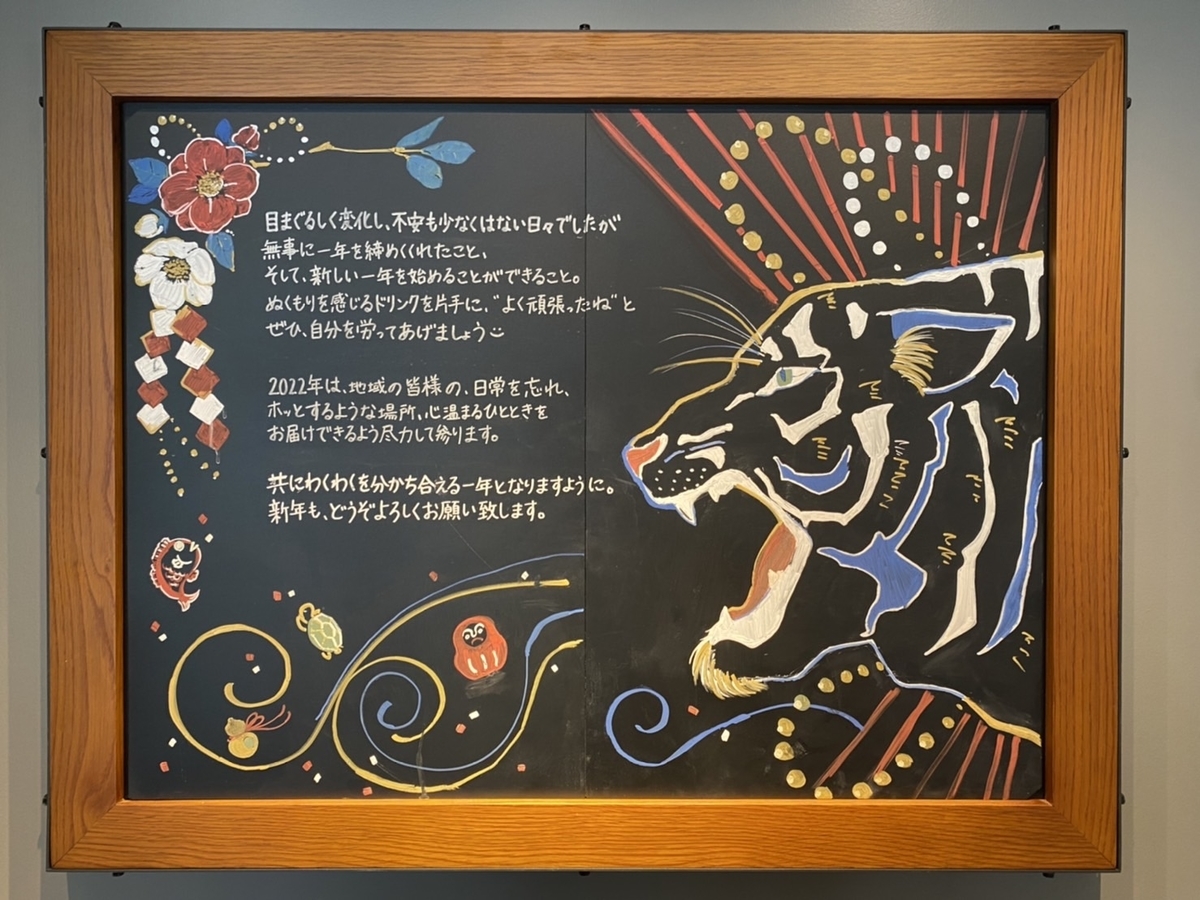 目まぐるしく変化し、不安も少なくはない日々でしたが
無事に一年を締めくくれたこと、
そして、新しい一年を始めることができること。
ぬくもりを感じるドリンクを片手に、“よく頑張ったね”と
ぜひ、自分を労ってあげましょう
2022年は、地域の皆様の、日常を忘れ、
ホッとするような場所、心温まるひとときを
お届けできるよう尽力して参ります。
共にわくわくを分かち合える一年となりますように。
新年も、どうぞよろしくお願い致します。